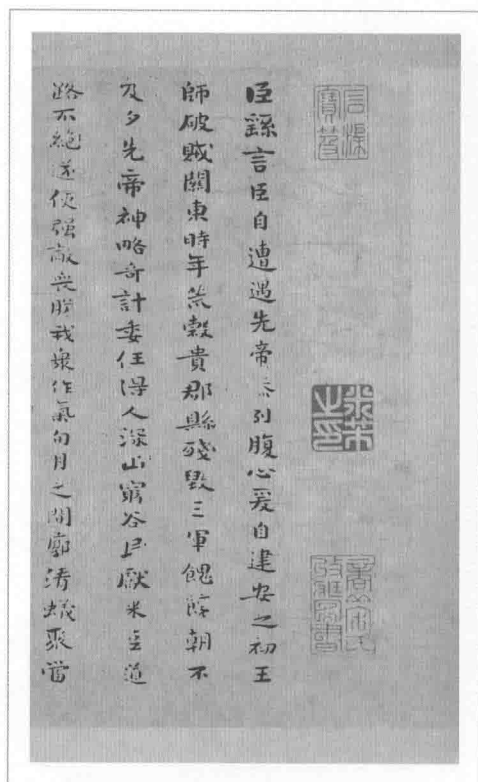 石渠寶笈
米芾之印
臣繇言臣自遭遇先帝忝列腹心爰自建安之初王
師破賊關東時年荒穀貴郡縣殘毀三軍餽饟朝不
及夕先帝神略奇計委任得人深山窮谷民獻米豆道
路不絕遂使强敵喪膽我衆作氣旬月之間廓清蟻聚當